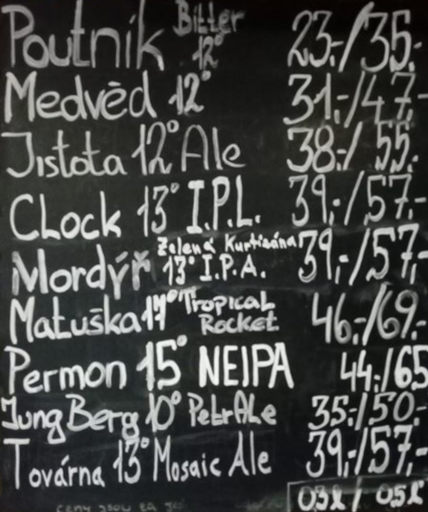 Poutník Bitter 12° 23.-/35.-
Medvěd 12° 31,-/47,-
Jistota 12° Ale 38.-/55.-
CLock 13° I.P.L. 39,-/57,-
Mordýř Zelená Kurtizána 13° I.P.A. 39,-/57,-
Matuška 17° Tropical Rocket 46.-/69.-
Permon 15° NEIPA 44.-/65
Jung Berg 10° Petr Ale 35.-/50.-
Továrna 13° Mosaic Ale 39,-/57,-
0,3l / 0,5l
ceny jsou za